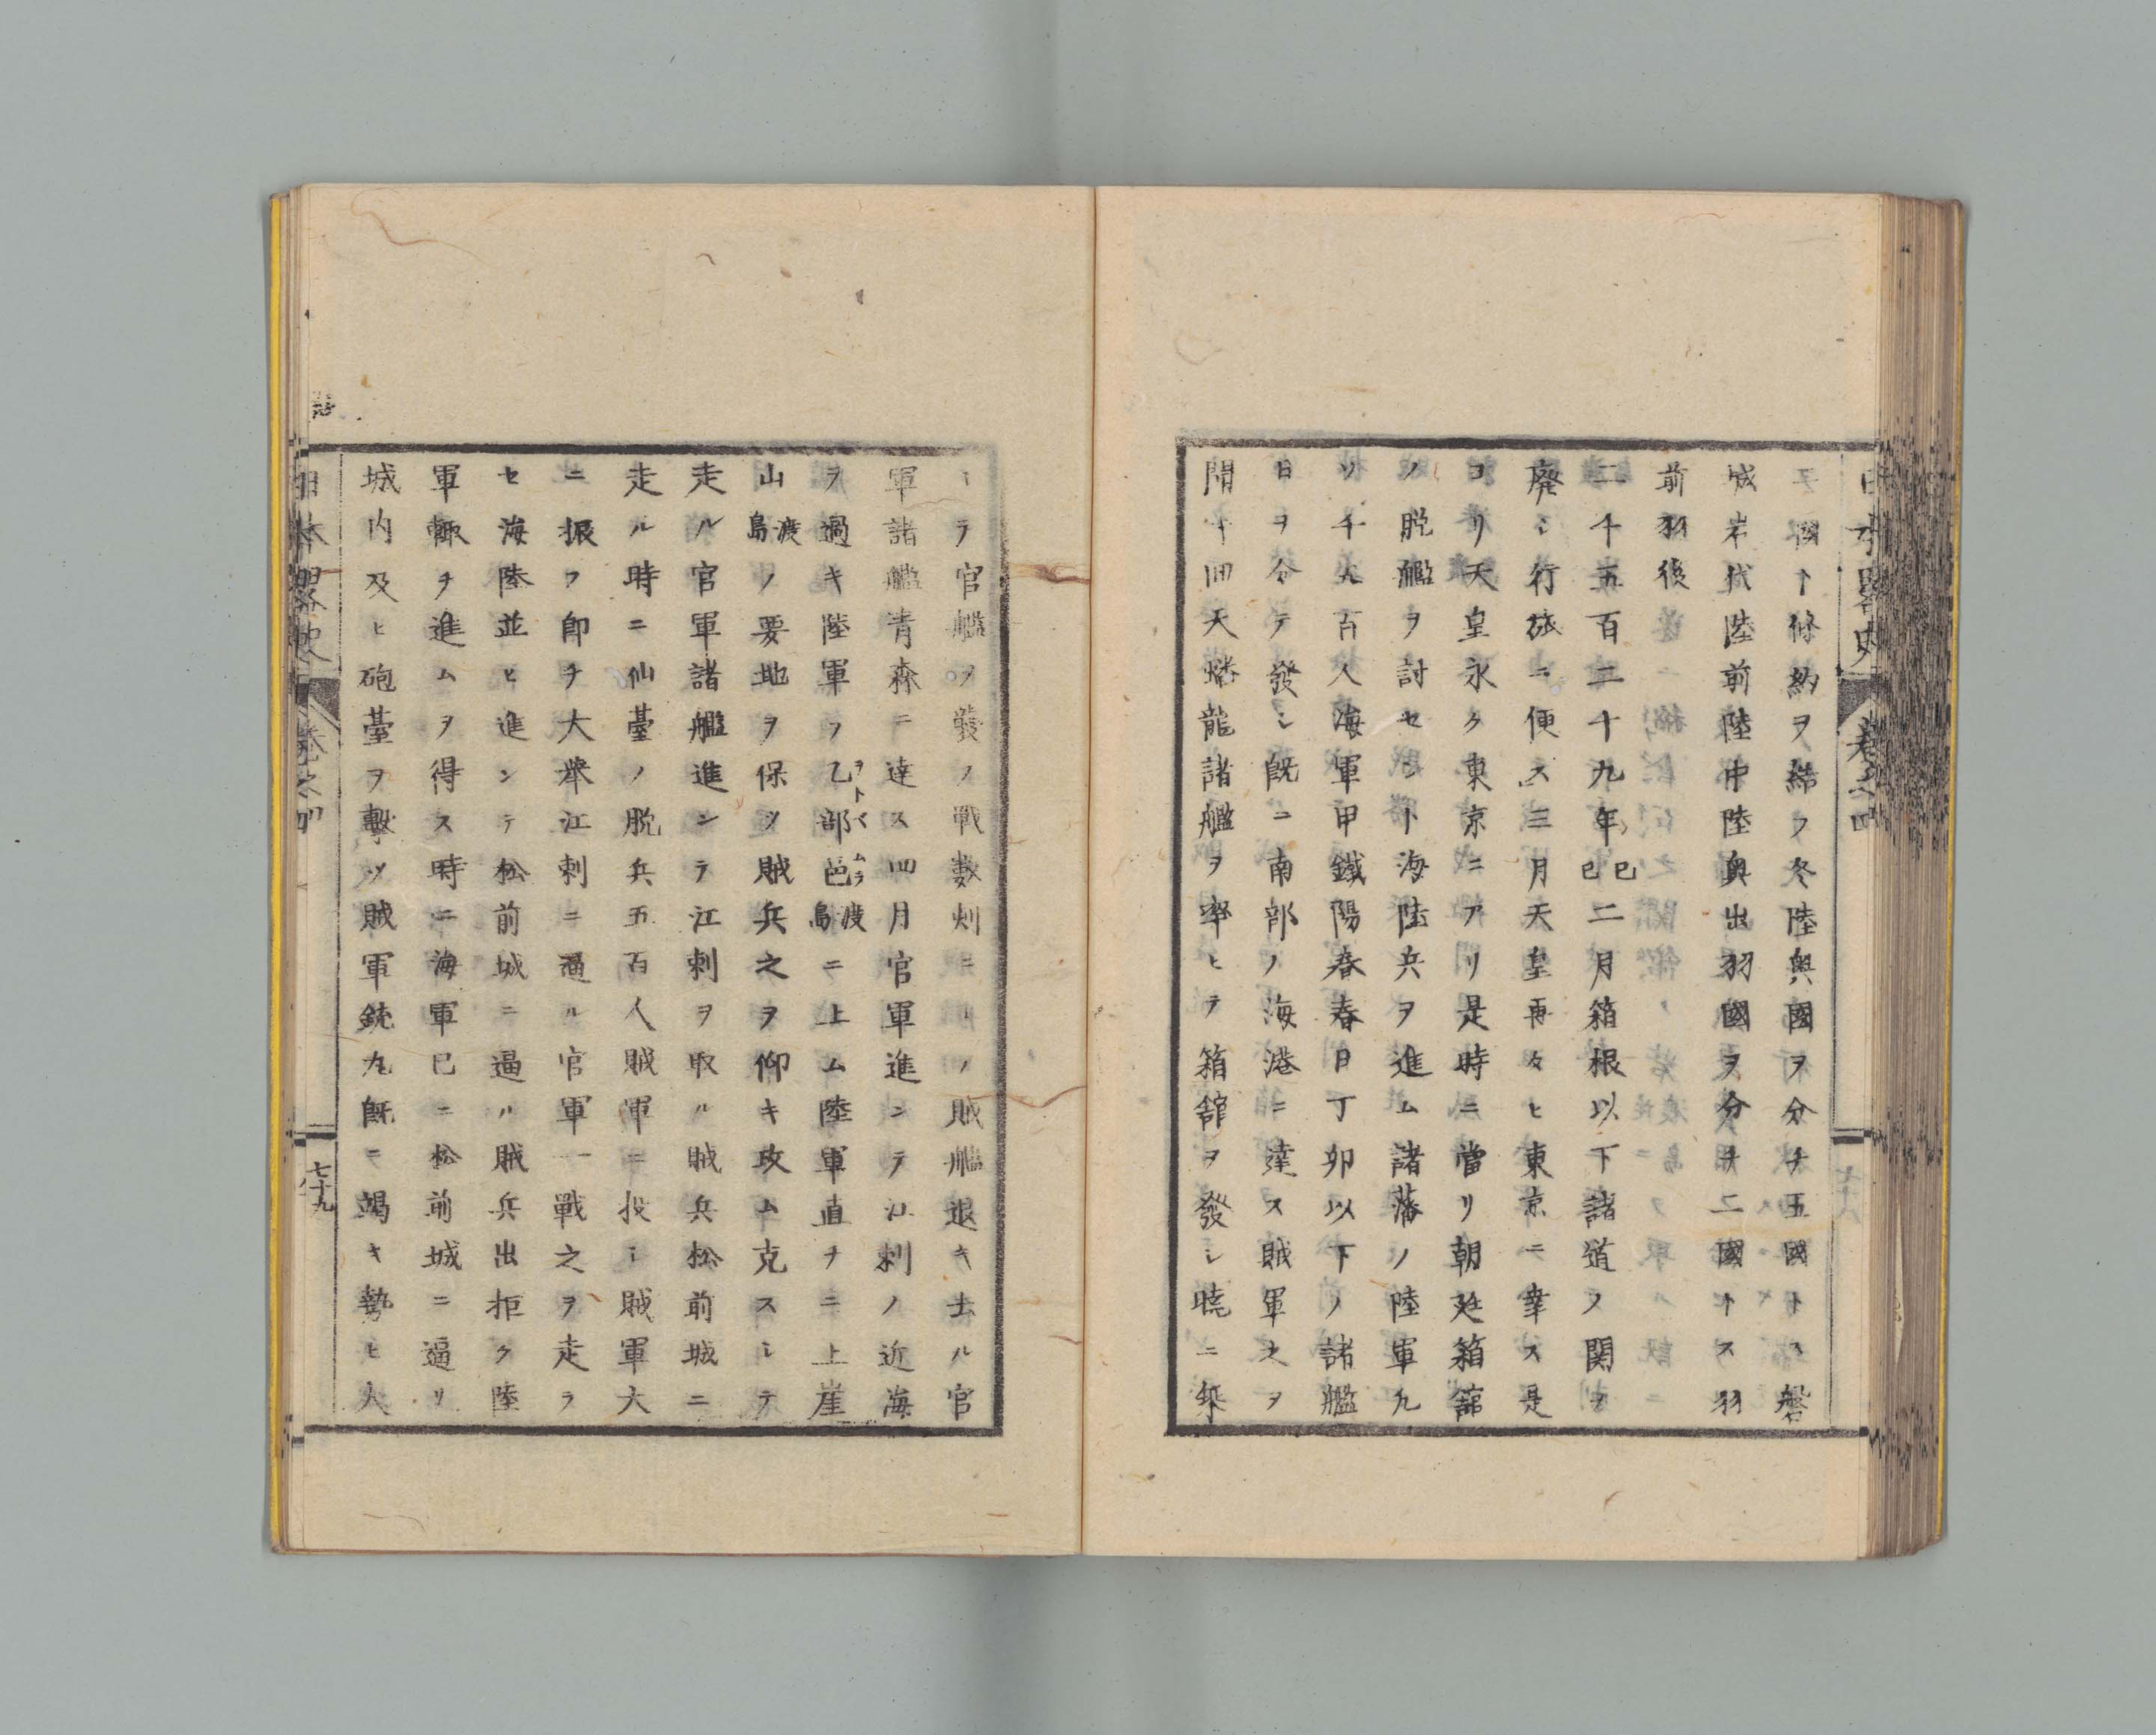 日本畧史 卷之四
七十八
テ國ト條約ヲ締フ冬陸奥國ヲ分チ五國トス磐
城岩代陸前陸中陸奥出羽國ヲ分チ二國トス羽
前羽後
二千五百二十九年己巳二月箱根以下諸道ノ関ヲ
廃シ行旅ニ便ス三月天皇再タヒ東京ニ幸ス是
ヨリ天皇永ク東京ニアリ是時ニ當リ朝廷箱舘
ノ脱艦ヲ討セント海陸兵ヲ進ム諸藩ノ陸軍九
ソ千六百人海軍甲鐵陽春春日丁卯以下ノ諸艦
日ヲ分テ發シ既ニ南部ノ海港ニ達ス賊軍之ヲ
聞キ回天蟠龍諸艦ヲ率ヒテ箱舘ヲ發シ暁ニ乗
シテ官艦ヲ襲フ戰數刻ニ 賊艦退キ去ル官
軍諸艦青森ニ達ス四月官軍進ンテ江刺ノ近海
ヲ過キ陸軍ヲ乙部邑渡島ニ上ム陸軍直チニ上崖
ヲトベ ムラ
山渡島ノ要地ヲ保ツ賊兵之ヲ仰キ攻ム克スシテ
走ル官軍諸艦進ンテ江刺ヲ取ル賊兵松前城ニ
走ル時ニ仙臺ノ脱兵五百人賊軍ニ投シ賊軍大
ニ振フ即チ大擧江刺ニ逼ル官軍一戰之ヲ走ラ
セ海陸並ヒ進ンテ松前城ニ逼ル賊兵出拒ク陸
軍輙ヲ進ムヲ得ス時ニ海軍已ニ松前城ニ逼リ
城内及ヒ砲䑓ヲ擊ツ賊軍銃丸既ニ竭キ勢ヒ大
日本畧史 卷之四
七十九